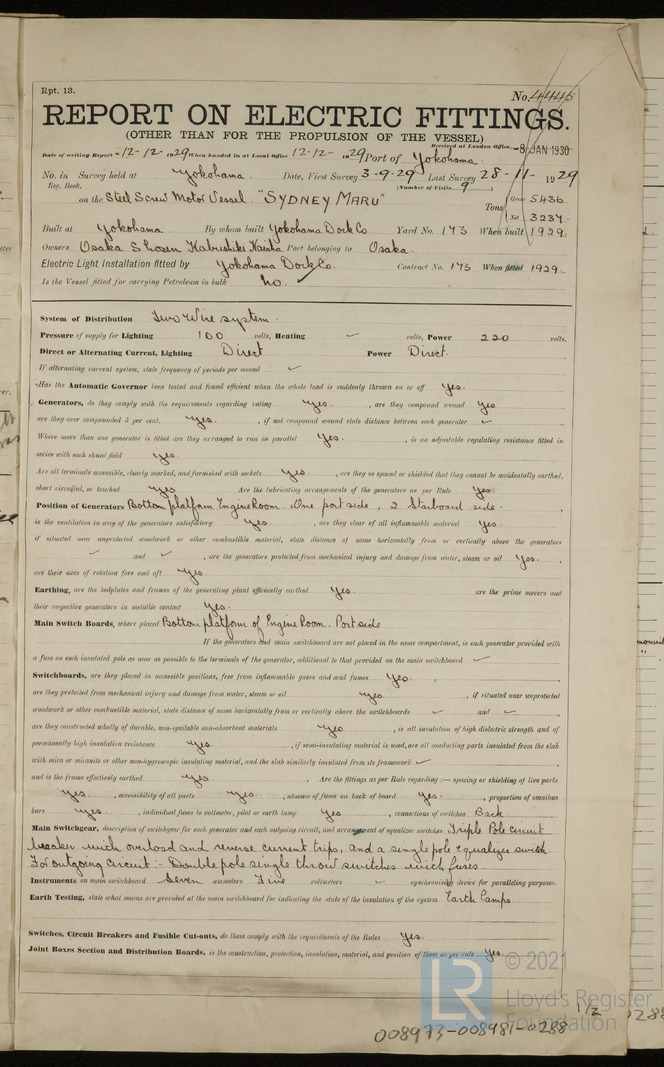 Rpt. 13.
No. 4445
REPORT ON ELECTRIC FITTINGS.
(OTHER THAN FOR THE PROPULSION OF THE VESSEL)
Received at London Office -8 JAN 1930
Date of writing Report 12-12-1929 When handed in at Local Office 12-12-1929 Port of Yokohama.
No. in Survey held at Yokohama. Date, First Survey 3-9-29 Last Survey 28-11-1929
Reg. Book. (Number of Visits 9)
on the Steel Screw Motor Vessel. "SYDNEY MARU" Tons { Gross 5436
Net 3237
Built at Yokohama. By whom built Yokohama Dock Co. Yard No. 173 When built 1929.
Owners Osaka Shosen Kabushiki Kaisha Port belonging to Osaka.
Electric Light Installation fitted by Yokohama Dock Co. Contract No. 173 When fitted 1929.
Is the Vessel fitted for carrying Petroleum in bulk No.
System of Distribution Two Wire system.
Pressure of supply for Lighting 100 volts, Heating ✓ volts, Power 220 volts.
Direct or Alternating Current, Lighting Direct Power Direct.
If alternating current system, state frequency of periods per second ✓
Has the Automatic Governor been tested and found efficient when the whole load is suddenly thrown on or off Yes.
Generators, do they comply with the requirements regarding rating Yes. , are they compound wound Yes
are they over compounded 5 per cent. Yes. , if not compound wound state distance between each generator ✓
Where more than one generator is fitted are they arranged to run in parallel Yes. , is an adjustable regulating resistance fitted in
series with each shunt field Yes.
Are all terminals accessible, clearly marked, and furnished with sockets Yes. , are they so spaced or shielded that they cannot be accidentally earthed,
short circuited, or touched Yes Are the lubricating arrangements of the generators as per Rule Yes.
Position of Generators Bottom platform Engine Room. One port side, 2 Starboard side.
is the ventilation in way of the generators satisfactory Yes. , are they clear of all inflammable material Yes.
if situated near unprotected woodwork or other combustible material, state distance of same horizontally from or vertically above the generators
✓ and ✓ , are the generators protected from mechanical injury and damage from water, steam or oil Yes. ,
are their axes of rotation fore and aft Yes.
Earthing, are the bedplates and frames of the generating plant efficiently earthed Yes. are the prime movers and
their respective generators in metallic contact Yes.
Main Switch Boards, where placed Bottom platform of Engine Room. Port side
If the generators and main switchboard are not placed in the same compartment, is each generator provided with
a fuse on each insulated pole as near as possible to the terminals of the generator, additional to that provided on the main switchboard ✓
Switchboards, are they placed in accessible positions, free from inflammable gases and acid fumes Yes. ,
are they protected from mechanical injury and damage from water, steam or oil Yes. , if situated near unprotected
woodwork or other combustible material, state distance of same horizontally from or vertically above the switchboards ✓ and ✓ ,
are they constructed wholly of durable, non-ignitable non-absorbent materials Yes , is all insulation of high dielectric strength and of
permanently high insulation resistance Yes , if semi-insulating material is used, are all conducting parts insulated from the slab
with mica or micanite or other non-hygroscopic insulating material, and the slab similarly insulated from its framework ✓ ,
and is the frame effectively earthed Yes . Are the fittings as per Rule regarding :— spacing or shielding of live parts
Yes. , accessibility of all parts Yes , absence of fuses on back of board Yes. , proportion of omnibus
bars Yes , individual fuses to voltmeter, pilot or earth lamp Yes , connections of switches Back
Main Switchgear, description of switchgear for each generator and each outgoing circuit, and arrangement of equalizer switches Triple Pole circuit
breaker with overload and reverse current trips, and a single pole equalizer switch.
For outgoing circuit :- Double pole single throw switches with fuses.
Instruments on main switchboard Seven ammeters Five voltmeters ✓ synchronising device for paralleling purposes.
Earth Testing, state what means are provided at the main switchboard for indicating the state of the insulation of the system Earth Lamps.
Switches, Circuit Breakers and Fusible Cut-outs, do these comply with the requirements of the Rules Yes.
Joint Boxes Section and Distribution Boards, is the construction, protection, insulation, material, and position of these as per rule Yes.
LR © 2021
Lloyd's Register
Foundation
1/2
008973-008981-0288